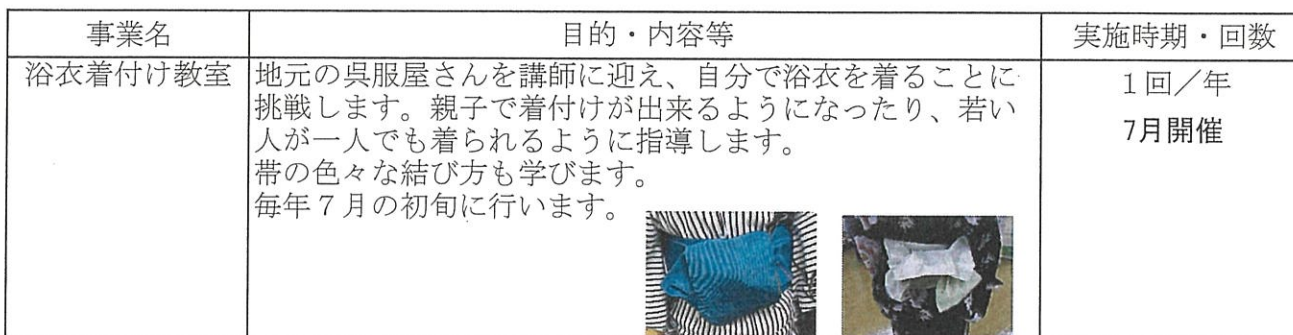 事業名
目的・内容等
実施時期・回数
浴衣着付け教室
地元の呉服屋さんを講師に迎え、自分で浴衣を着ることに
挑戦します。親子で着付けが出来るようになったり、若い
人が一人でも着られるように指導します。
帯の色々な結び方も学びます。
毎年７月の初旬に行います。
１回／年
7月開催